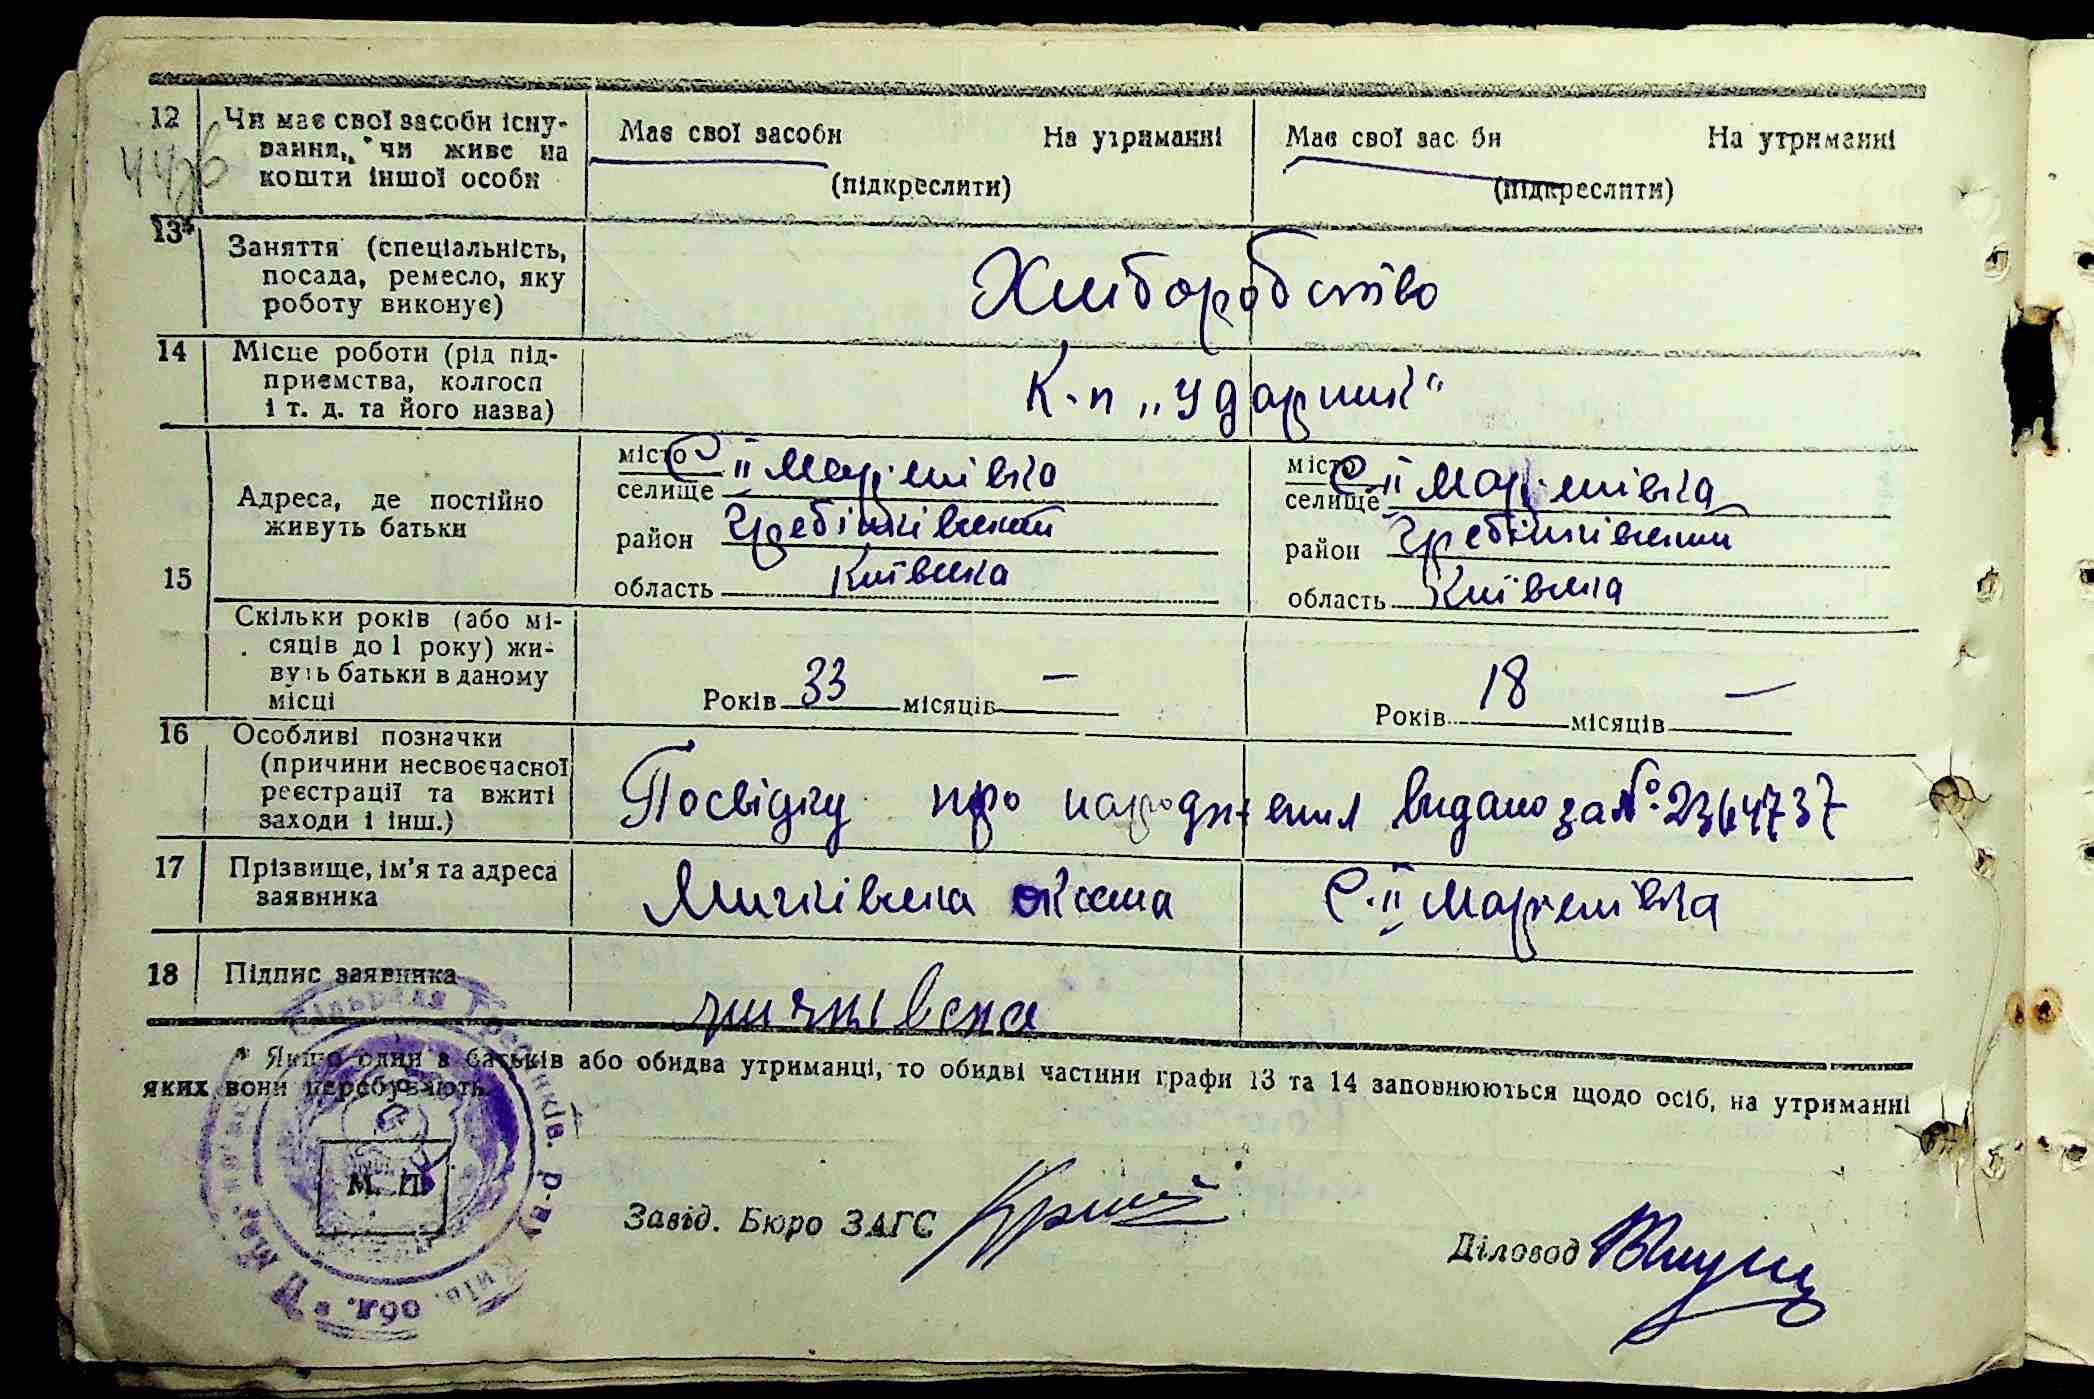 12 Чи має свої засоби існу-
вання, чи живе на
кошти іншої особи
Має свої засоби На утриманні
(підкреслити)
Має свої зас би На утриманні
(підкреслити)
13* Заняття (спеціальність,
посада, ремесло, яку
роботу виконує)
Хліборобство
14 Місце роботи (рід під-
приємства, колгосп
і т. д. та його назва)
К-п „Ударник“
15 Адреса, де постійно
живуть батьки
місто С. ІІ Мар'янівка
селище
район Гребінківський
область Київська
місто С. ІІ Мар'янівка
селище
район Гребінківський
область Київська
Скільки років (або мі-
сяців до 1 року) жи-
вуть батьки в даному
місці
Років 33 місяців —
Років 18 місяців —
16 Особливі позначки
(причини несвоєчасної
реєстрації та вжиті
заходи і інш.)
Посвідку про народження видано за № 2364737
17 Прізвище, ім'я та адреса
заявника
Оксана С. ІІ Мар'янівка
18 Підпис заявника
* Якщо один з батьків або обидва утриманці, то обидві частини графи 13 та 14 заповнюються щодо осіб, на утриманні
яких вони перебувають.
М. П.
Завід. Бюро ЗАГС
Діловод